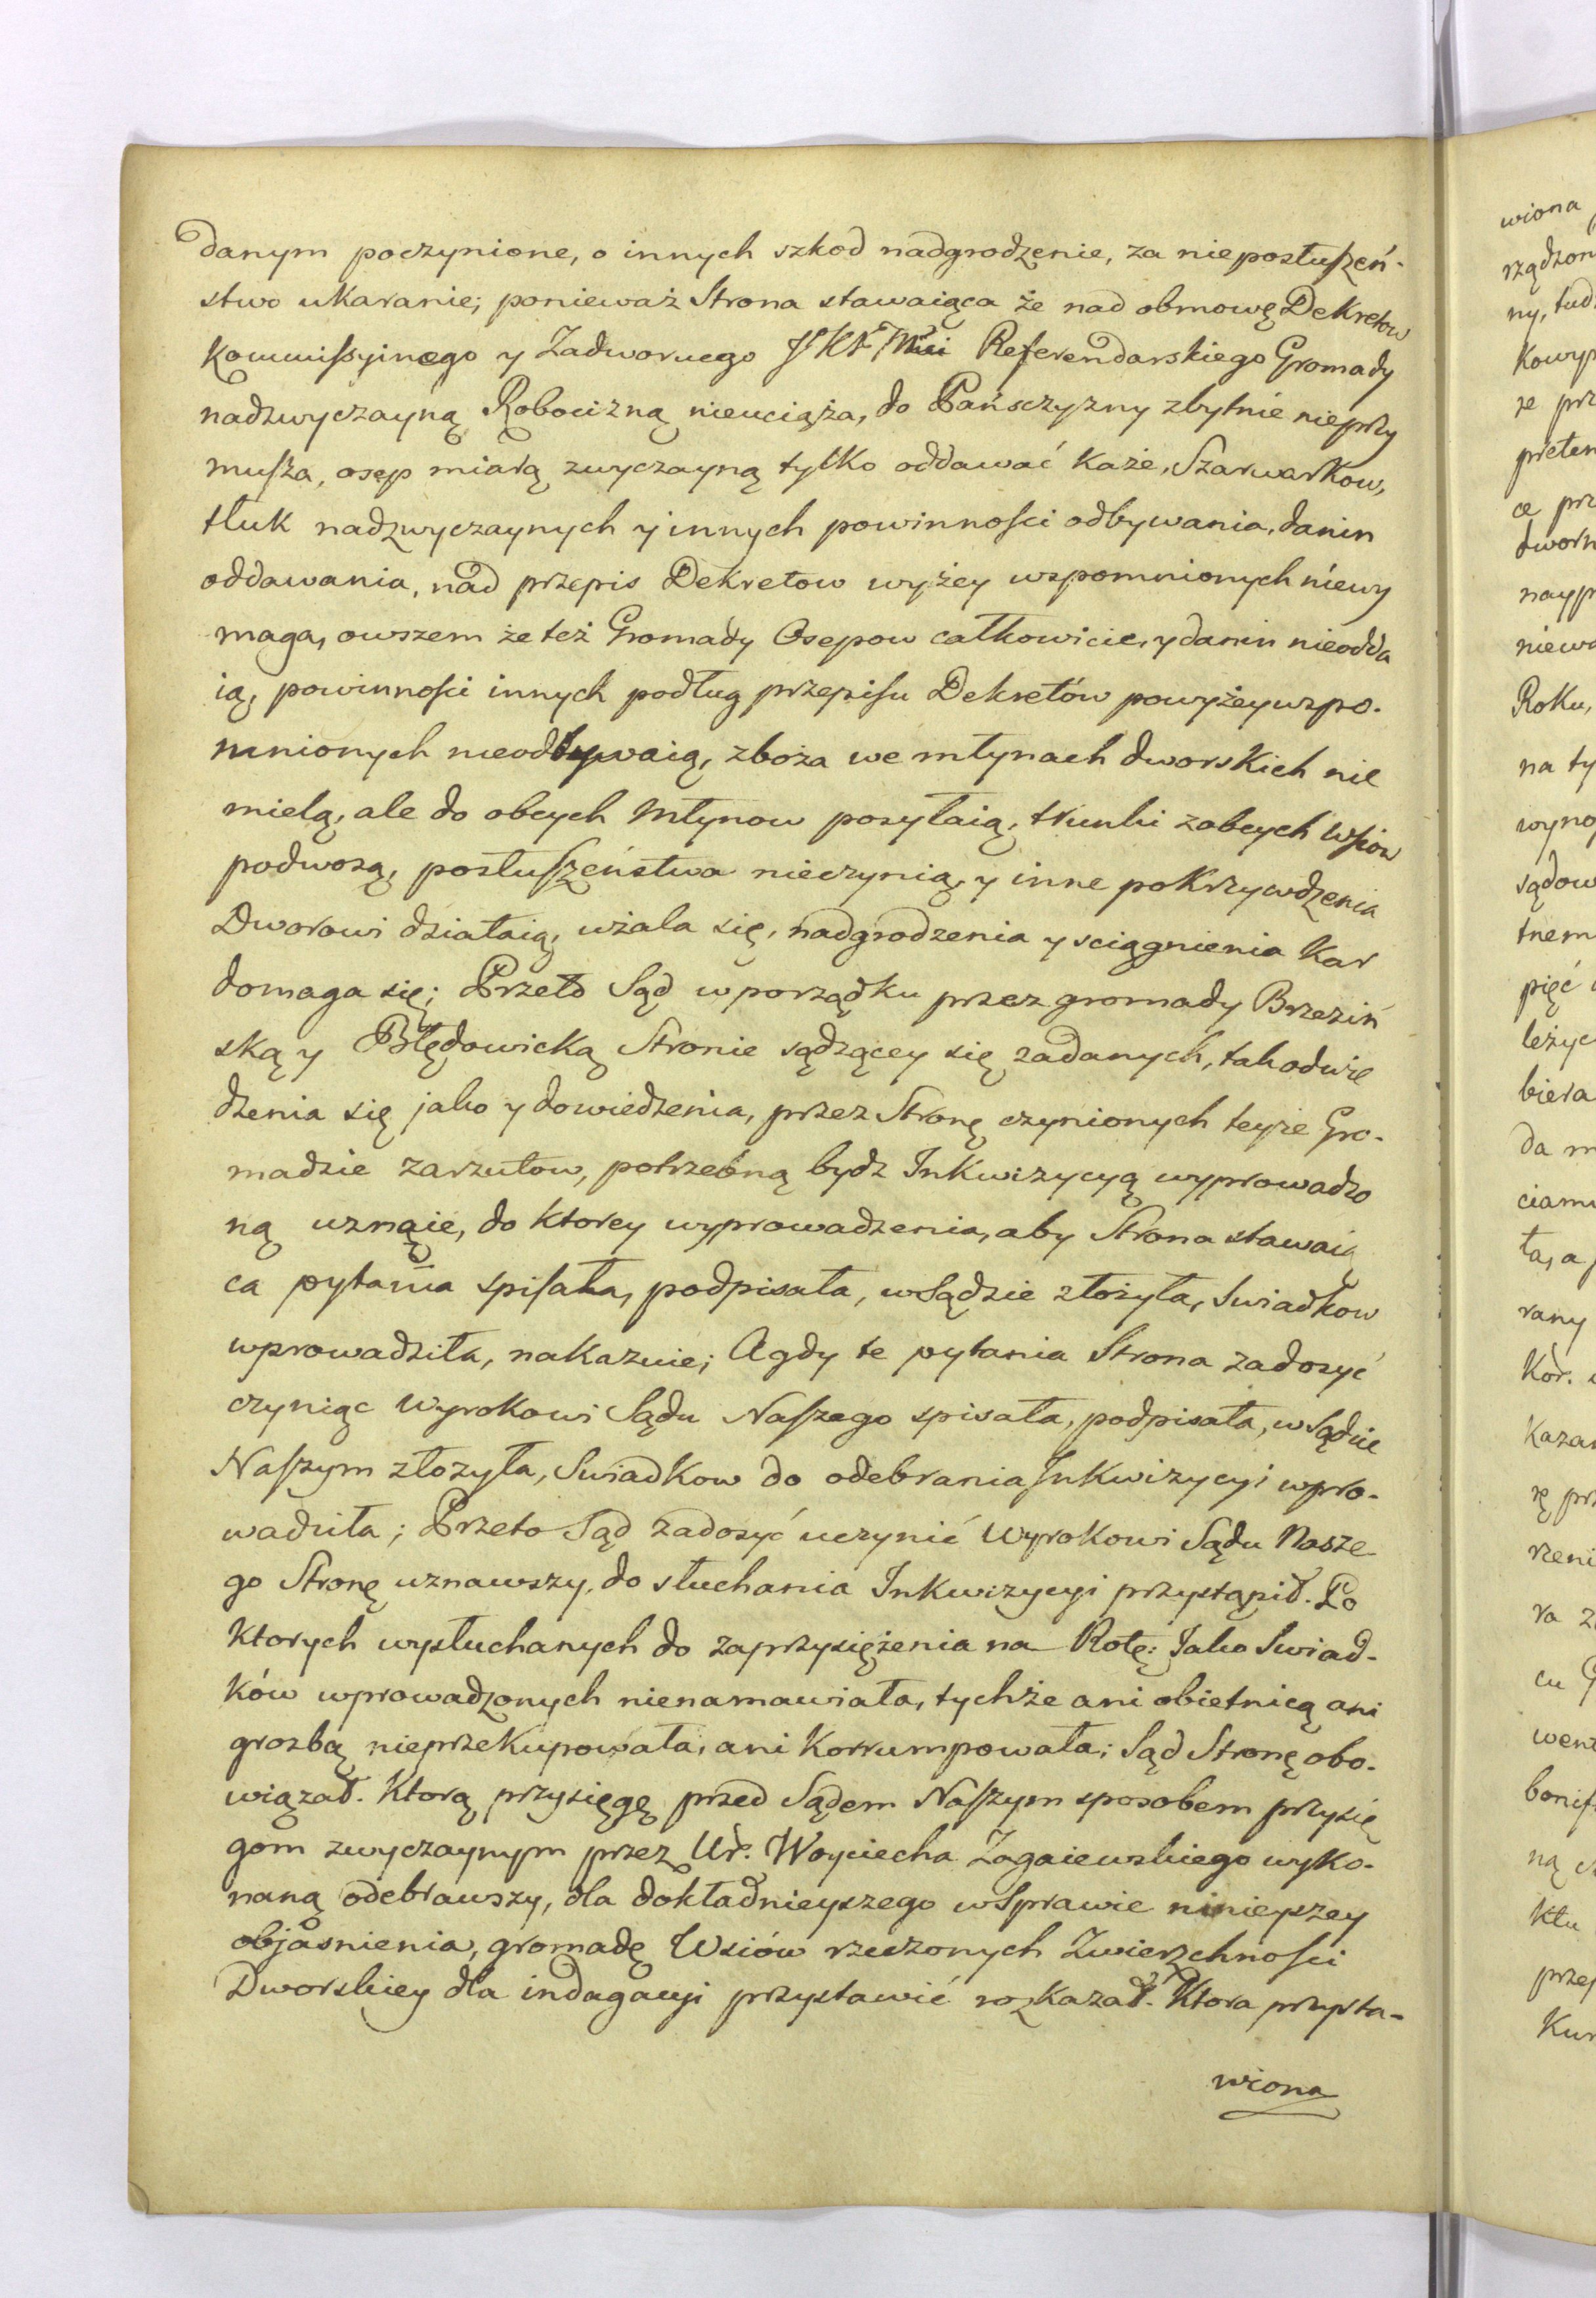 danym poczynione, o innych szkod nadgrodzenie, za nieposłuszeń-
stwo ukaranie; ponieważ Strona stawaiąca że nad obmowę Dekretow
Kommissyinego y Zadwornego JKr Mci Referendarskiego Gromady
nadzwyczayną Robocizną nieuciąża, do Pańsczyzny zbytnie nieprzy
musza, osep miarą zwyczayną tylko oddawać każe, Szarwarkow,
tłuk nadzwyczaynych y innych powinności odbywania, danin
oddawania, nad przepis Dekretow wyżey wspomnionych niewy
maga, owszem że też Gromady Osepow całkowicie, y danin nieodda
ią, powinności innych podług przepisu Dekretów powyżey wspo-
mnionych nieodbywaią, zboża we młynach dworskich nie
mielą, ale do obcych Młynow posyłaią, trunki z obcych Wsiow
podwozą, posłuszeństwa nieczynią, y inne pokrzywdzenia
Dworowi działaią, użala się, nadgrodzenia y sciągnienia Kar
domaga się; Przeto Sąd w porządku przez gromady Brzeziń
ską y Błędowicką Stronie sądzącey się zadanych, tak odwie
dzenia się jako y dowiedzenia, przez Stronę czynionych teyże Gro-
madzie zarzutow, potrzebną bydz Inkwizycyą wyprowadzo
ną uznaie, do ktorey wyprowadzenia, aby Strona stawaią
ca pytania spisała, podpisała, w Sądzie złożyła, Swiadkow
wprowadziła, nakazuie; A gdy te pytania Strona zadosyć
czyniąc Wyrokowi Sądu Naszego spisała, podpisała, w Sądzie
Naszym złozyła, Swiadkow do odebrania Inkwizycyi wpro-
wadziła; Przeto Sąd zadosyć uczynić Wyrokowi Sądu Nasze-
go Stronę uznawszy, do słuchania Inkwizycyi przystąpił. Po
ktorych wysłuchanych do zaprzysiężenia na Rotę: Jako Swiad-
ków wprowadzonych nienamawiała, tychże ani obietnicą ani
grozbą nieprzekupowała, ani Korrumpowała; Sąd Stronę obo-
wiązał. Ktorą przysięgę przed Sądem Naszym sposobem przysię
gom zwyczaynym przez Ur. Woyciecha Zagaiewskiego wyko-
naną odebrawszy, dla dokładnieyszego w Sprawie ninieyszey
objasnienia, gromadę Wsiów rzeczonych Zwierzchności
Dworskiey dla indagacyi przystawić rozkazał. Ktora przysta-
wiona
wiona
rządzon
ny, tud
Kowyp
ze prz
preten
ce prz
dworn
nayp
niewa
Roku,
na ty
wyno
sądow
tnem
pięć
leżyc
biera
da m
ciami
ła, a
rany
Kor.
Kazan
rę prz
rzeni
ra
cu
went
bonif
ną
ktu
przep
Kur